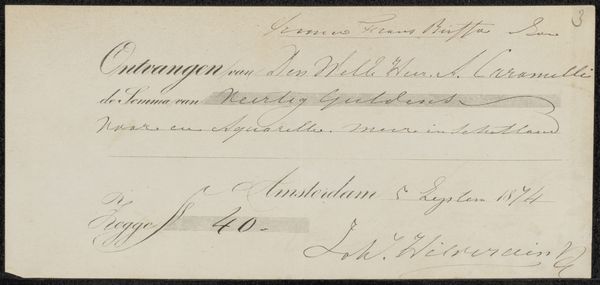 3
Firma Frans Buffa Zon
Ontvangen van Den Wel Heer A. Caramelli
de Somma van Veertig Guldens
voor een Aquarelle. meer in Schotland
Amsterdam 5 1874
Zegge f 40-
Joh.